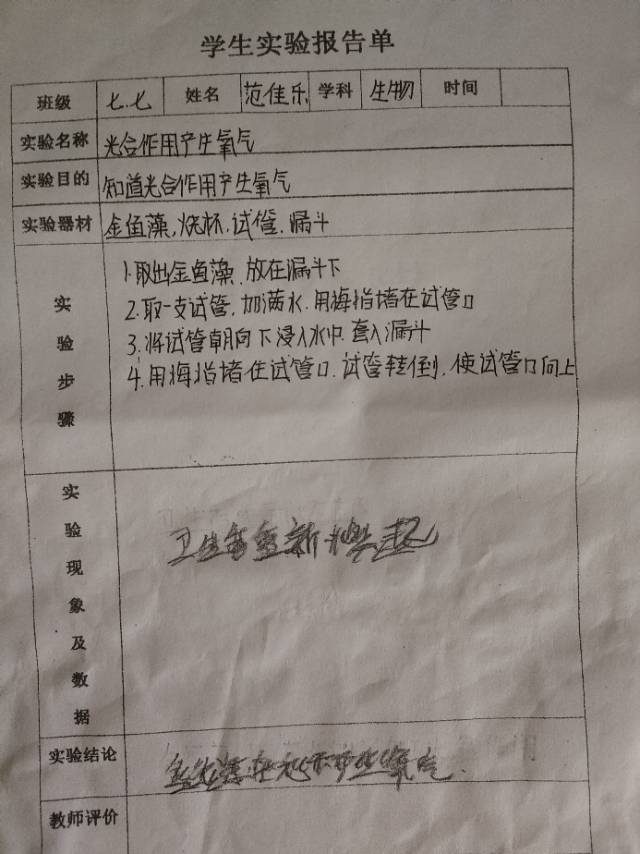 学生实验报告单
班级 七.七 姓名 范佳乐 学科 生物 时间
实验名称 光合作用产生氧气
实验目的 知道光合作用产生氧气
实验器材 金鱼藻,烧杯,试管,漏斗
实验步骤
1.取出金鱼藻,放在漏斗下
2.取一支试管,加满水.用拇指堵在试管口
3.将试管朝向下浸入水中.套入漏斗
4.用拇指堵住试管口.试管转倒,使试管口向上
实验现象及数据
卫生香重新燃起
实验结论 金鱼藻在光下产生氧气.
教师评价